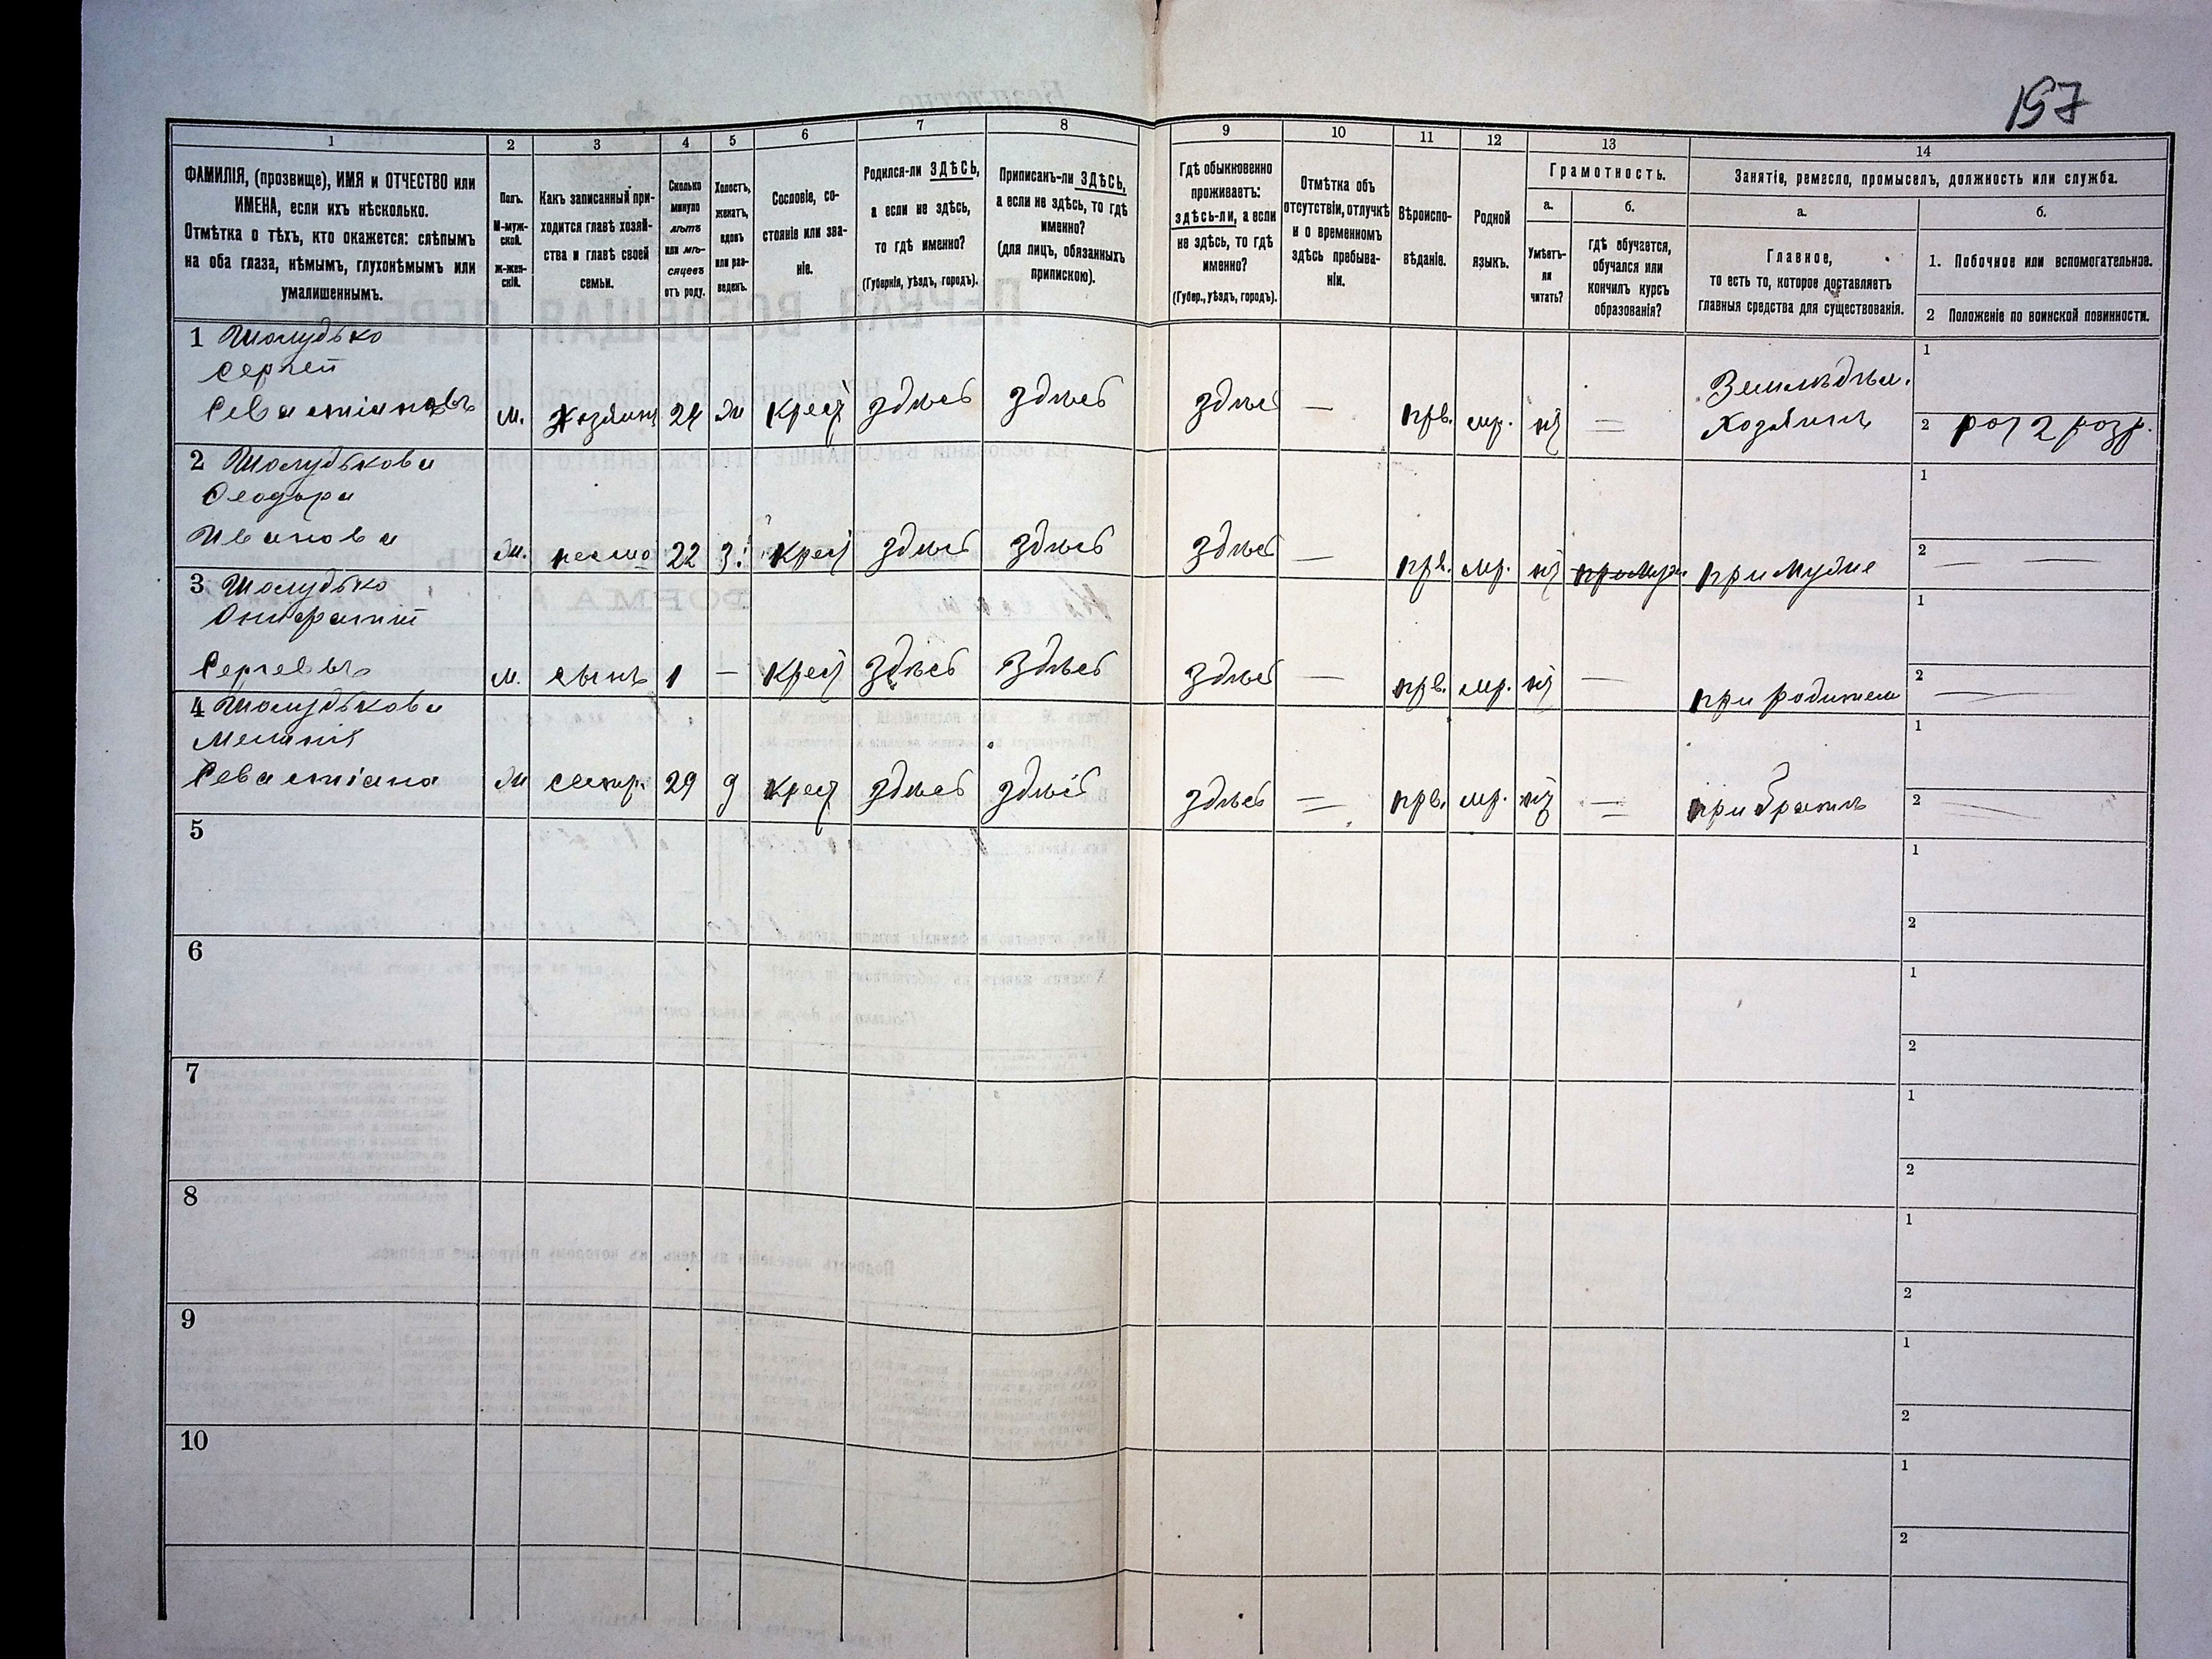 157
1
2
3
4
5
6
7
8
9
10
11
12
13
14
ФАМИЛІЯ, (прозвище), ИМЯ и ОТЧЕСТВО или
ИМЕНА, если ихъ нѣсколько.
Отмѣтка о тѣхъ, кто окажется: слѣпымъ
на оба глаза, нѣмымъ, глухонѣмымъ или
умалишеннымъ.
Полъ.
М-муж-
ской.
ж-жен-
скій.
Какъ записанный при-
ходится главѣ хозяй-
ства и главѣ своей
семьи.
Сколько
минуло
лѣтъ
или мѣ-
сяцевъ
отъ роду.
Холостъ,
женатъ,
вдовъ
или раз-
веденъ.
Сословіе, со-
стояніе или зва-
ніе.
Родился-ли ЗДѢСЬ,
а если не здѣсь,
то гдѣ именно?
(Губернія, уѣздъ, городъ).
Приписанъ-ли ЗДѢСЬ,
а если не здѣсь, то гдѣ
именно?
(для лицъ, обязанныхъ
припискою).
Гдѣ обыкновенно
проживаетъ:
здѣсь-ли, а если
не здѣсь, то гдѣ
именно?
(Губер., уѣздъ, городъ).
Отмѣтка объ
отсутствіи, отлучкѣ
и о временномъ
здѣсь пребыва-
ніи.
Вѣроиспо-
вѣданіе.
Родной
языкъ.
Грамотность.
а.
Умѣетъ-
ли
читать?
б.
гдѣ обучается,
обучался или
кончилъ курсъ
образованія?
Занятіе, ремесло, промыселъ, должность или служба.
а.
Главное,
то есть то, которое доставляетъ
главныя средства для существованія.
б.
1. Побочное или вспомогательное.
2 Положеніе по воинской повинности.
1 Шолудько
Сергей
Севастіановъ
м. Хозяинъ 24 ж крес здѣсь здѣсь здѣсь — прв. мр. нѣ = Земледѣл.
Хозяинъ
1
2
2 Шолудькова
Феодора
Иванова
ж. 22 з. крес здѣсь здѣсь здѣсь — прв. мр. нѣ при мужѣ
1
2 — —
3 Шолудько
Сергеевъ
м. сынъ 1 — крес здѣсь здѣсь здѣсь — прв. мр. нѣ — при родителѣ
1
2 —
4 Шолудькова
Меланія
Севастіана
ж сестр. 29 д крес здѣсь здѣсь здѣсь = прв. мр. нѣ = при братѣ
1
2 —
5
1
2
6
1
2
7
1
2
8
1
2
9
1
2
10
1
2